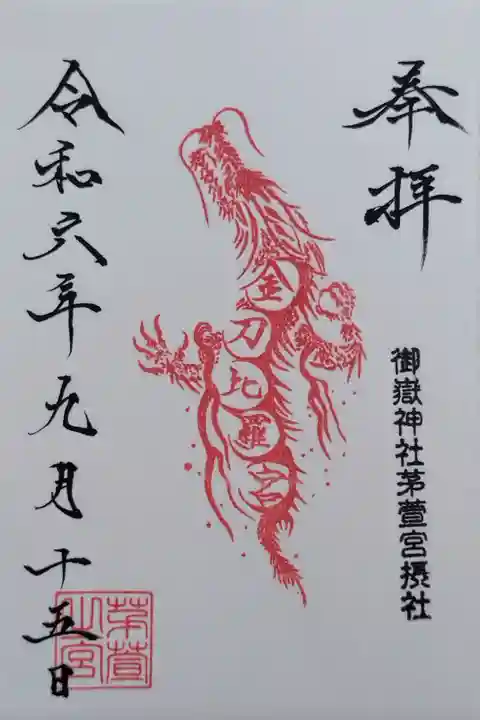 奉拝
御嶽神社茅萱宮摂社
金刀比羅宮
令和六年九月十五日
茅萱
山宮